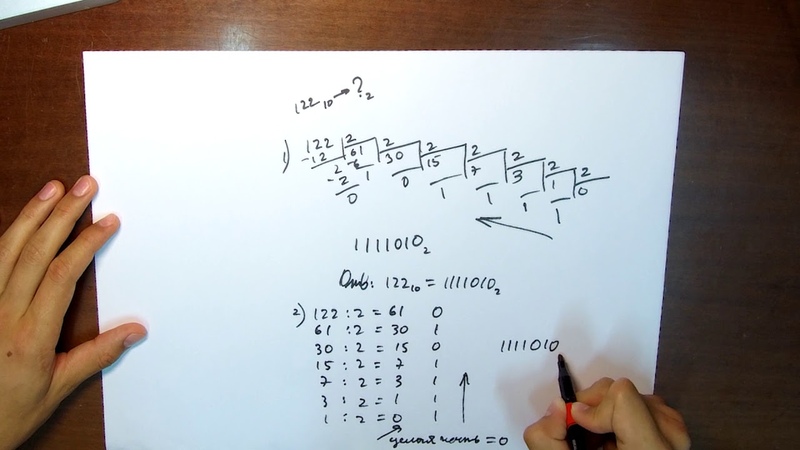 122₁₀ → ?₂
1) 122 2 2 2 2 2 2 2
-12 61 30 15 7 3 1 0
2 6 1 0 1 1 1 1
-2
0
1111010₂
Отв: 122₁₀ = 1111010₂
2) 122 : 2 = 61 0
61 : 2 = 30 1
30 : 2 = 15 0
1111010
15 : 2 = 7 1
7 : 2 = 3 1
3 : 2 = 1 1
1 : 2 = 0 1
целый часть = 0